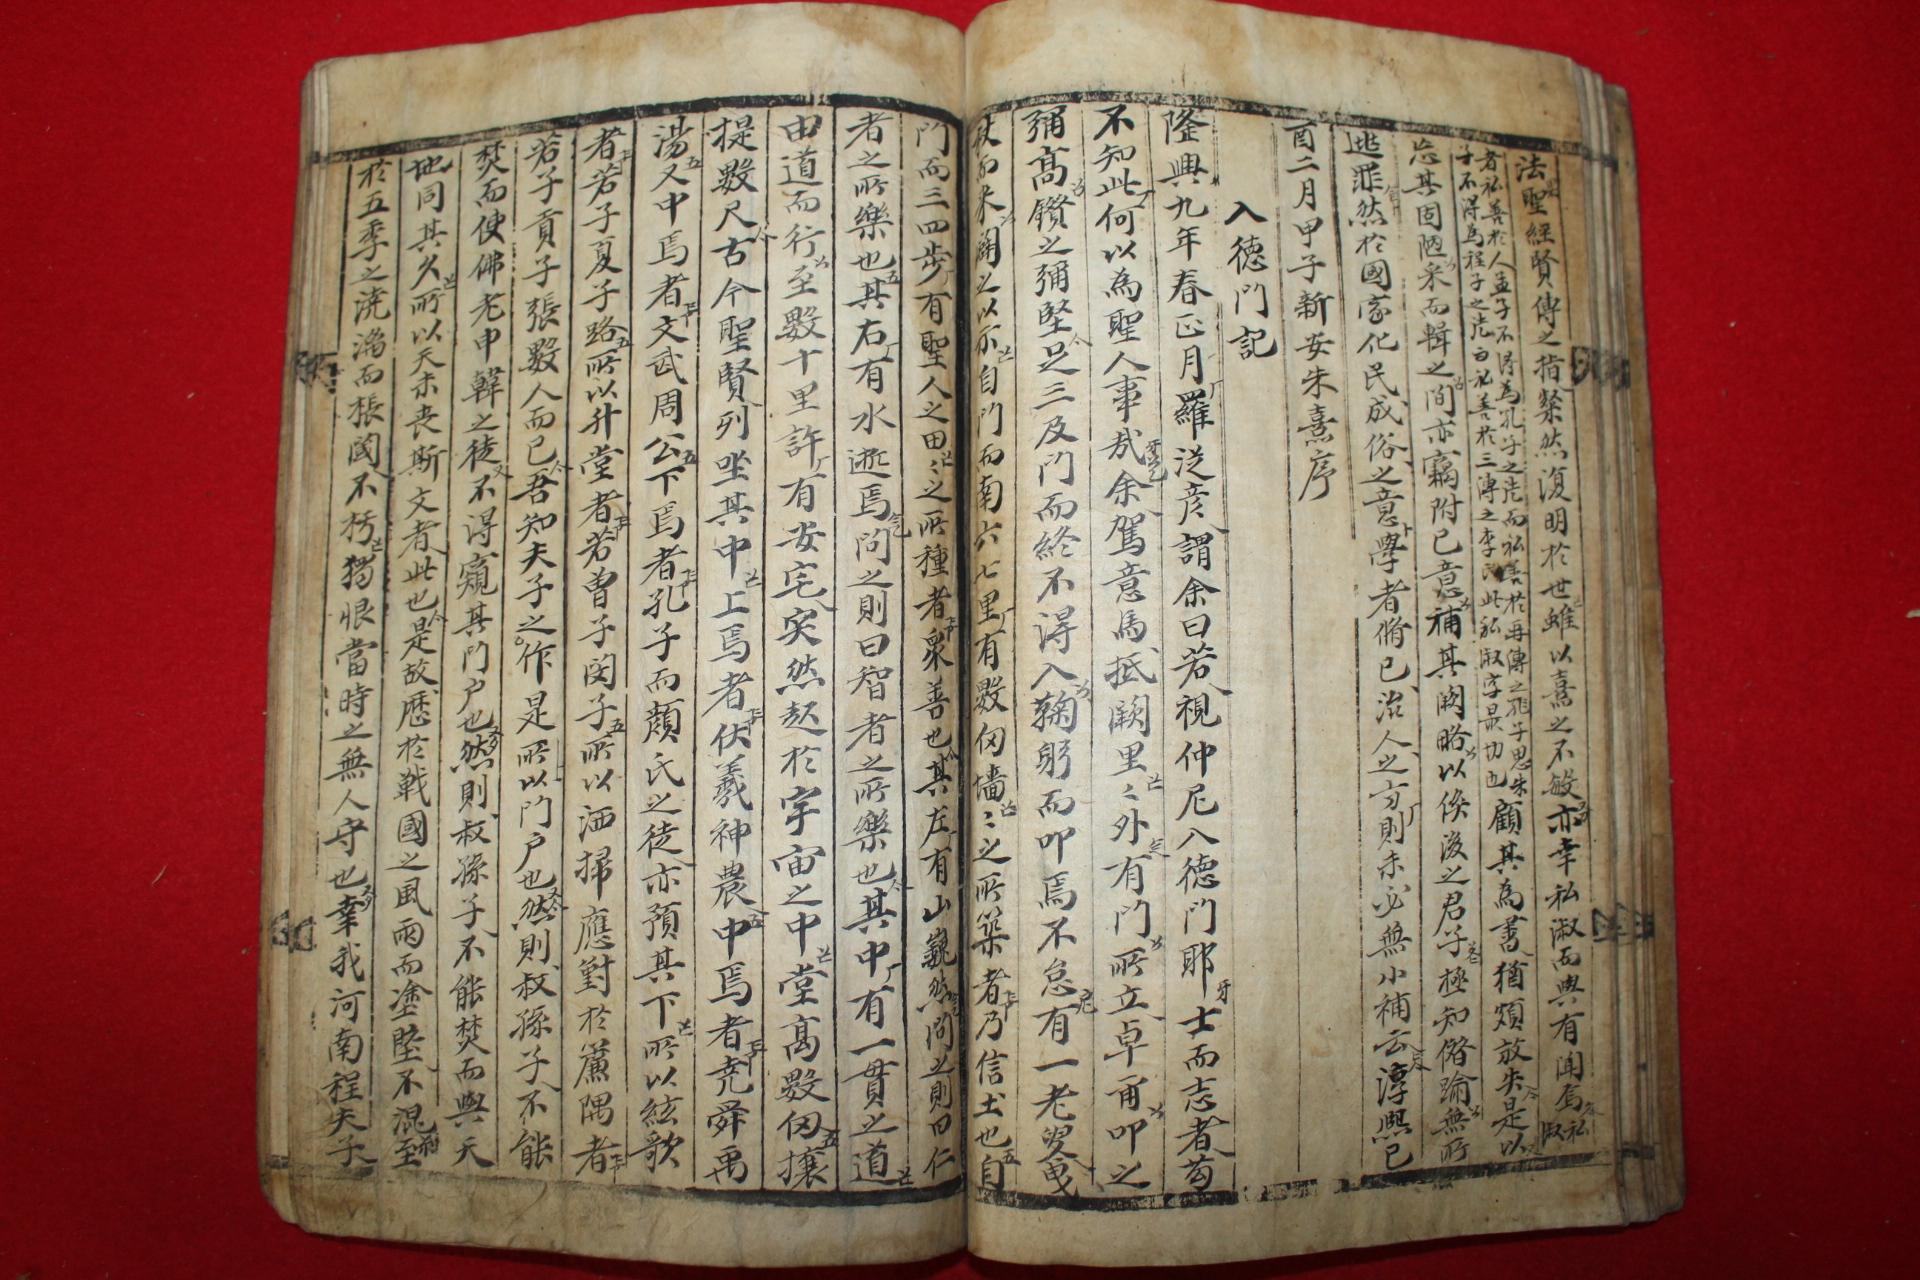 法聖經賢傳之指粲然復明於世雖以熹之不敏亦幸私淑而與有聞焉私淑
者私善於人孟子不得為孔子之徒而私善於再傳之孔子思朱
子不得為程子之徒而私善於三傳之李氏此私淑字最切也顧其為書猶頗放失是以
忘其固陋采而輯之間亦竊附己意補其闕略以俟後之君子極知僭踰無所
逃罪然於國家化民成俗之意學者脩己治人之方則未必無小補云淳熙己
酉二月甲子新安朱熹序
入德門記
隆興九年春正月羅從彦謂余曰若視仲尼入德門耶士而志者苟
不知此何以為聖人事哉余駕意馬抵闕里〻外有門所立卓甭叩之
彌高鑽之彌堅足三及門而終不得入鞠躬而叩焉不怠有一老叟曳
杖而來闢之以示自門而南六七里有數仞墻〻之所築者乃信士也自
門而三四步有聖人之田〻之所種者衆善也其左有山巍然問之則曰仁
者之所樂也其右有水逝焉問之則曰智者之所樂也其中有一貫之道
由道而行至數十里許有安宅突然起於宇宙之中堂高數仞攘
提數尺古今聖賢列坐其中上焉者伏羲神農中焉者堯舜禹
湯又中焉者文武周公下焉者孔子而顔氏之徒亦預其下所以絃歌
者若子夏子路所以升堂者若曾子閔子所以洒掃應對於簾隅者
若子貢子張數人而已吾知夫子之作是所以門户也然則叔孫子不能
焚而使佛老申韓之徒不得窺其門户也然則叔孫子不能焚而與天
地同其久所以天未喪斯文者此也是故歷於戰國之風雨而塗墍不混至
於五季之澆漓而棖闑不朽獨恨當時之無人守也幸我河南程夫子